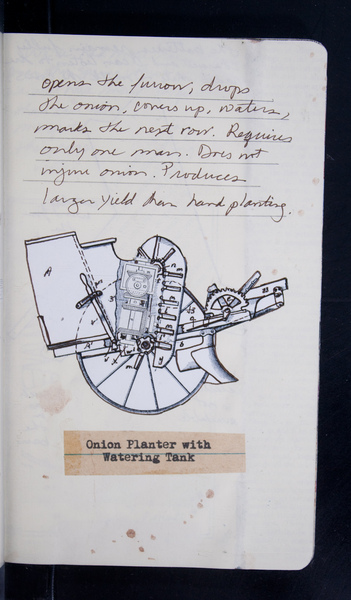 opens the furrow, drops
the onion, covers up, waters,
marks the next row. Requires
only one man. Does not
injure onion. Produces
larger yield than hand planting.
A
45
Onion Planter with
Watering Tank